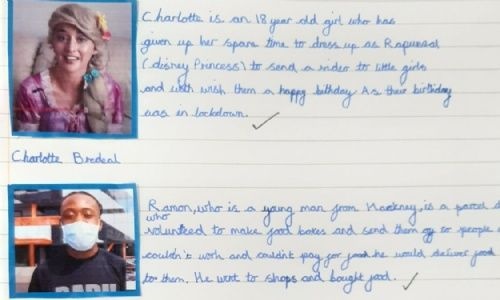 Charlotte is an 18 year old girl who has
given up her spare time to dress up as Rapunzal
(disney Princess) to send a video to little girls
and wish them a happy bithday As their birthday
was in lockdown.
Charlotte Bredeal
Ramon, who is a young man from Hackney, is a parcel
who
volunteed to make food boxes and send them off so people
couldn't work and couldn't pay for food he would deliver food
to them. He went to shops and bought food.